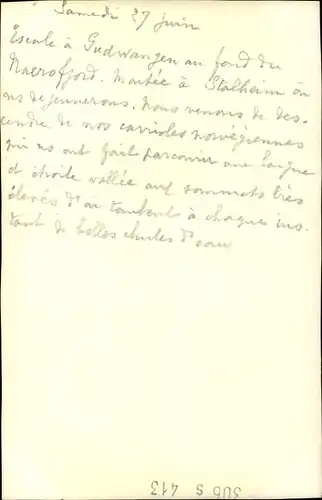 Samedi 27 Juin
Escale à Gudwangen au fond du
Naerofjord. Montée à Stalheim où
ns déjeunerons. Nous venons de des-
cendre de nos carrioles norvégiennes
qui ns ont fait parcourir une longue
et étroite vallée aux sommets très
élevés d'où tombent à chaque ins.
tant de belles chutes d'eau
306 S 413